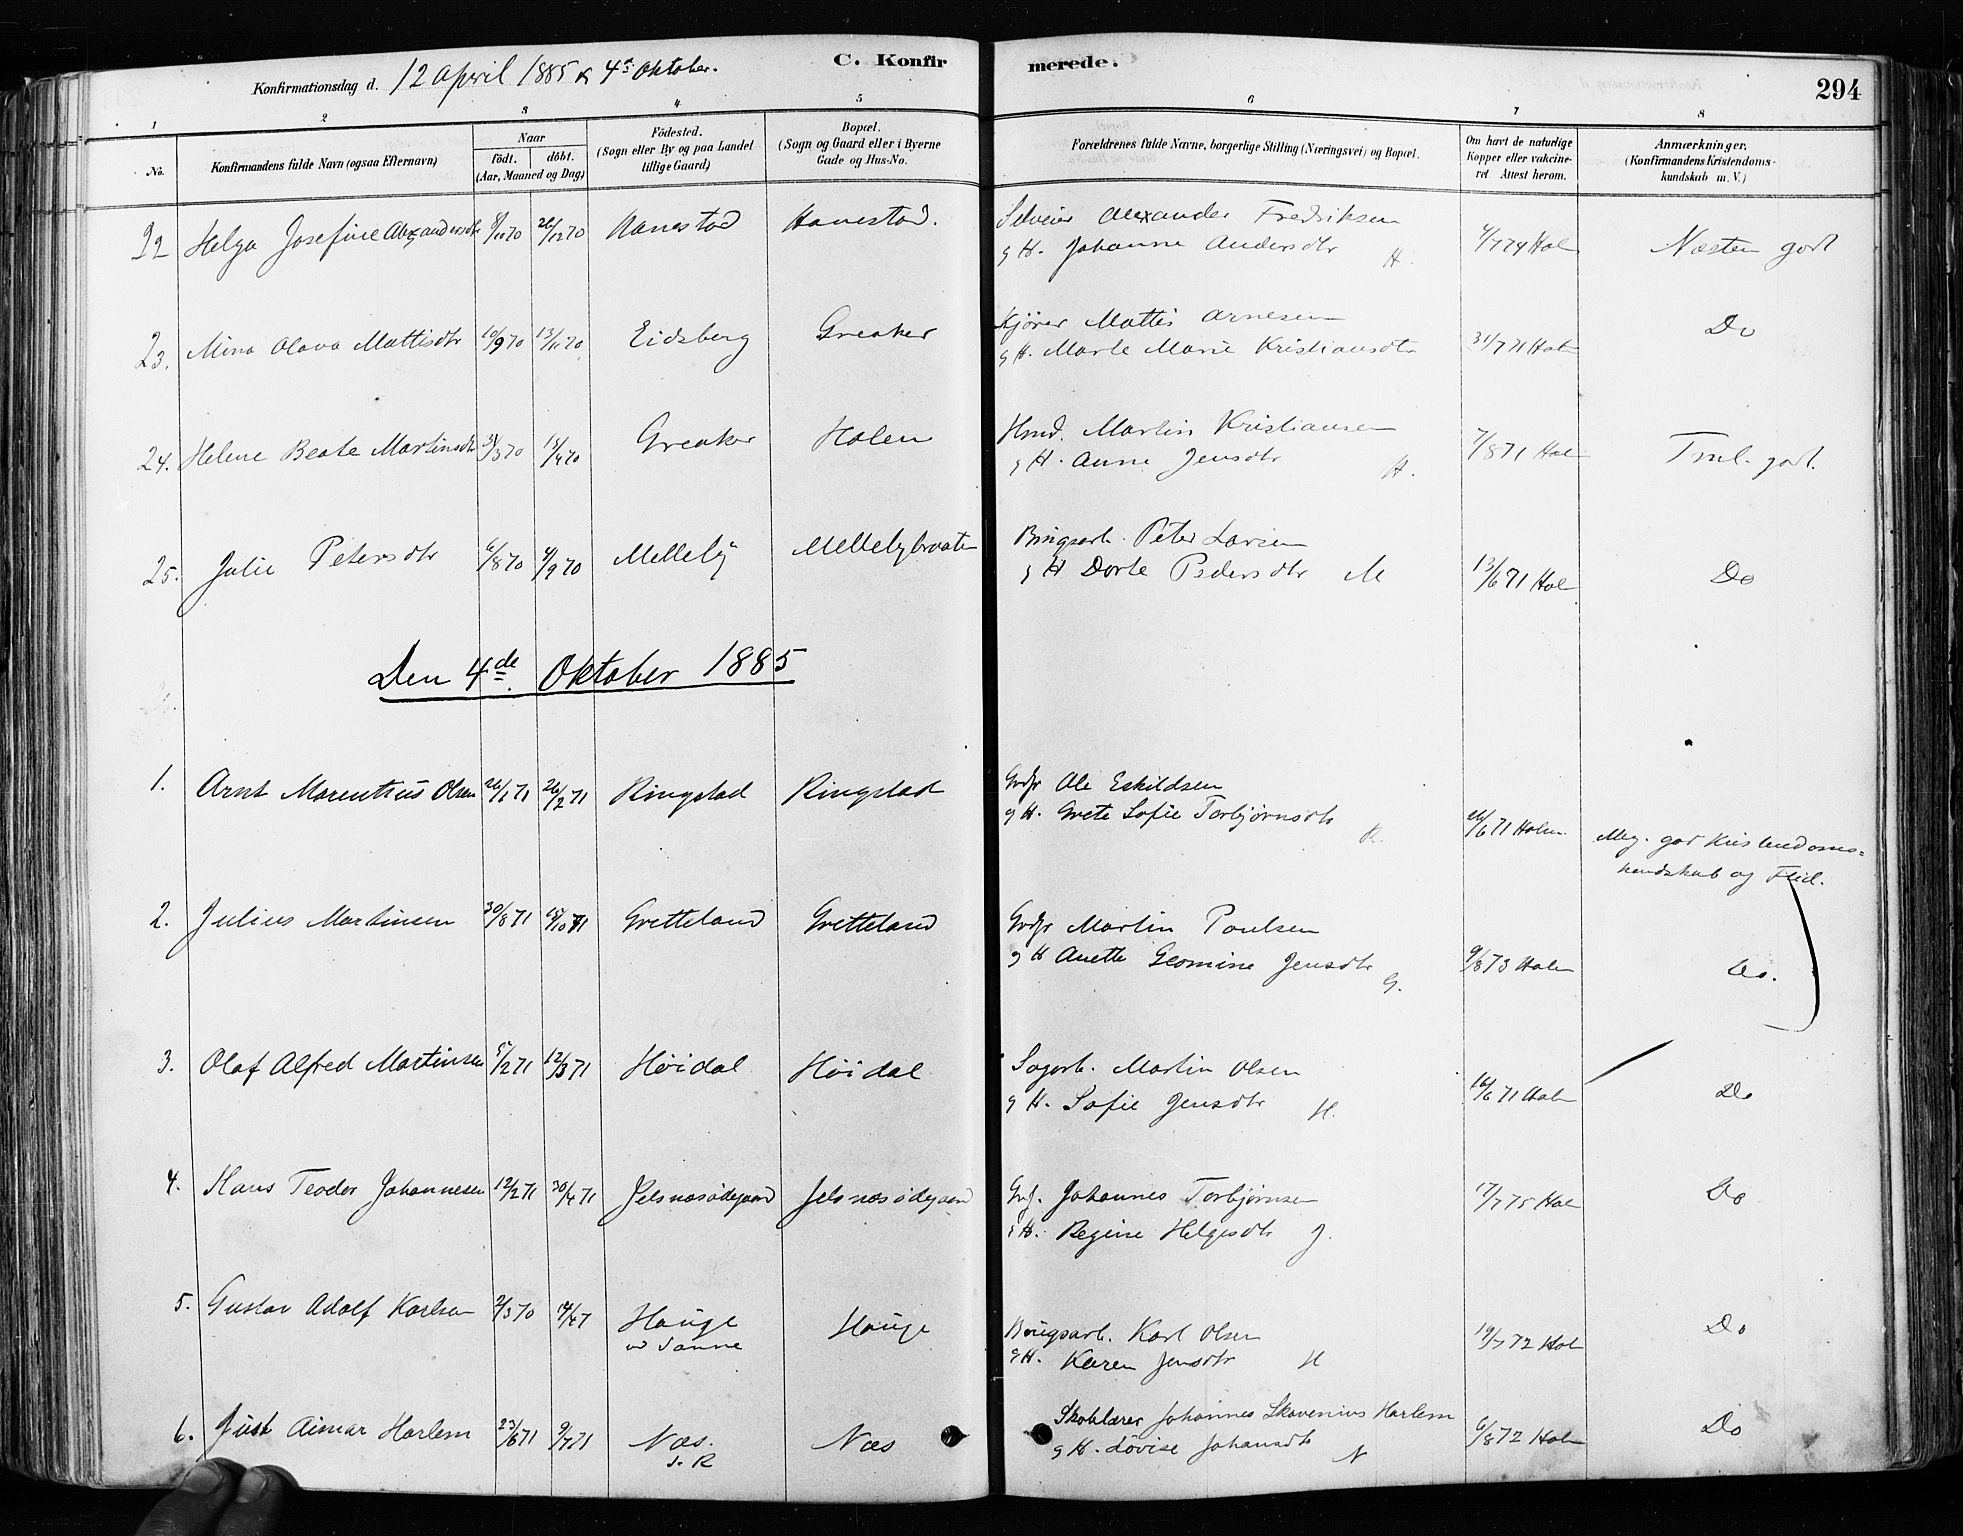 C. Konfirmerede.
294
Konfirmationsdag d. 12 April 1885 & 4de Oktober.
1 2 3 4 5 6 7 8
No.
Konfirmandens fulde Navn (ogsaa Efternavn)
Naar
födt. döbt.
(Aar, Maaned og Dag)
Födested.
(Sogn eller By og paa Landet
tillige Gaard)
Bopæl.
(Sogn og Gaard eller i Byerne
Gade og Hus-No.
Forældrenes fulde Navne, borgerlige Stilling (Næringsvei) og Bopæl.
Om havt de naturlige
Kopper eller vakcine-
ret Attest herom.
Anmærkninger.
(Konfirmandens Kristendoms-
kundskab m. V.)
22 Helga Josefine Alexandersdtr 26/12 70 Hanestad Hanestad. Selveier Alexander Fredriksen 4/7 74 Hol Næsten godt
g H. Johanne Andersdtr H.
23. Mina Olava Mattisdtr 10/9 70 13/11 70 Eidsberg Greaker Kjörer Mattis Arnesen 31/7 71 Hol Do
g H. Marte Marie Kristiansdtr
24. Helene Beate Martinsdtr 31/3 70 15/4 70 Greaker Holen Hmd. Martin Kristiansen 7/8 71 Hol Tml. godt.
g H. Anne Jensdtr H.
25. Julie Petersdtr 6/8 70 4/9 70 Melleby Mellebybraaten Brugsarb. Peter Larsen 13/6 71 Hol Do
g H Dorte Pedersdtr M
Den 4de Oktober 1885
1. Arnt Marentius Olsen 26/1 71 26/2 71 Ringstad Ringstad Grdfr Ole Eskildsen
g H. Grete Sofie Torbjørnsdtr R. 16/6 71 Holm Meg. god Kristendoms=
kundskab og Flid.
2. Julius Martinsen 30/8 71 15/10 71 Gretteland Gretteland Grdfr Martin Poulsen
g H Anette Geomine Jensdtr G. 9/8 73 Holm Do.
3. Olaf Alfred Martinsen 5/2 71 12/3 71 Höidal Höidal Sagarb. Martin Olsen
g H. Sofie Jensdtr H. 16/6 71 Hol Do
4. Hans Teodor Johannesen 12/2 71 30/4 71 Jelsnæsødegaard Jelsnæsødegaard Grf. Johannes Torbjørnsen 17/7 75 Hol Do
g H. Regine Helgesdtr J.
5. Gustav Adolf Karlsen 2/3 70 Hauge Hauge Brugsarb. Karl Olsen 19/7 72 Hol Do
g H. Karen Jensdtr H
6. Just Aimar Harlem 23/6 71 9/7 71 Næs. Næs Skolelærer Johannes Skavenius Harlem 6/8 72 Hol Do
g H. Lovise Johansdtr N